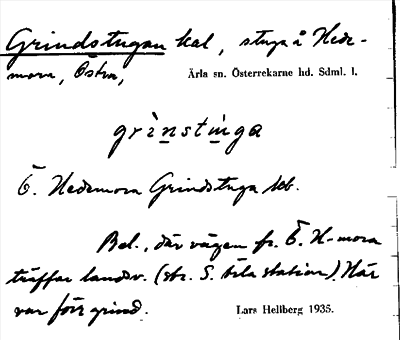 Grindstugan kal, stuga å Hede-
mora, Östra,
Ärla sn. Österrekarne hd. Sdml. l.
grìnstùga
Ö. Hedemora Grindstuga kb.
Bel., där vägen fr. Ö. H-mora
träffar landsv. (str. S. Ärla station). Här
var förr grind.
Lars Hellberg 1935.